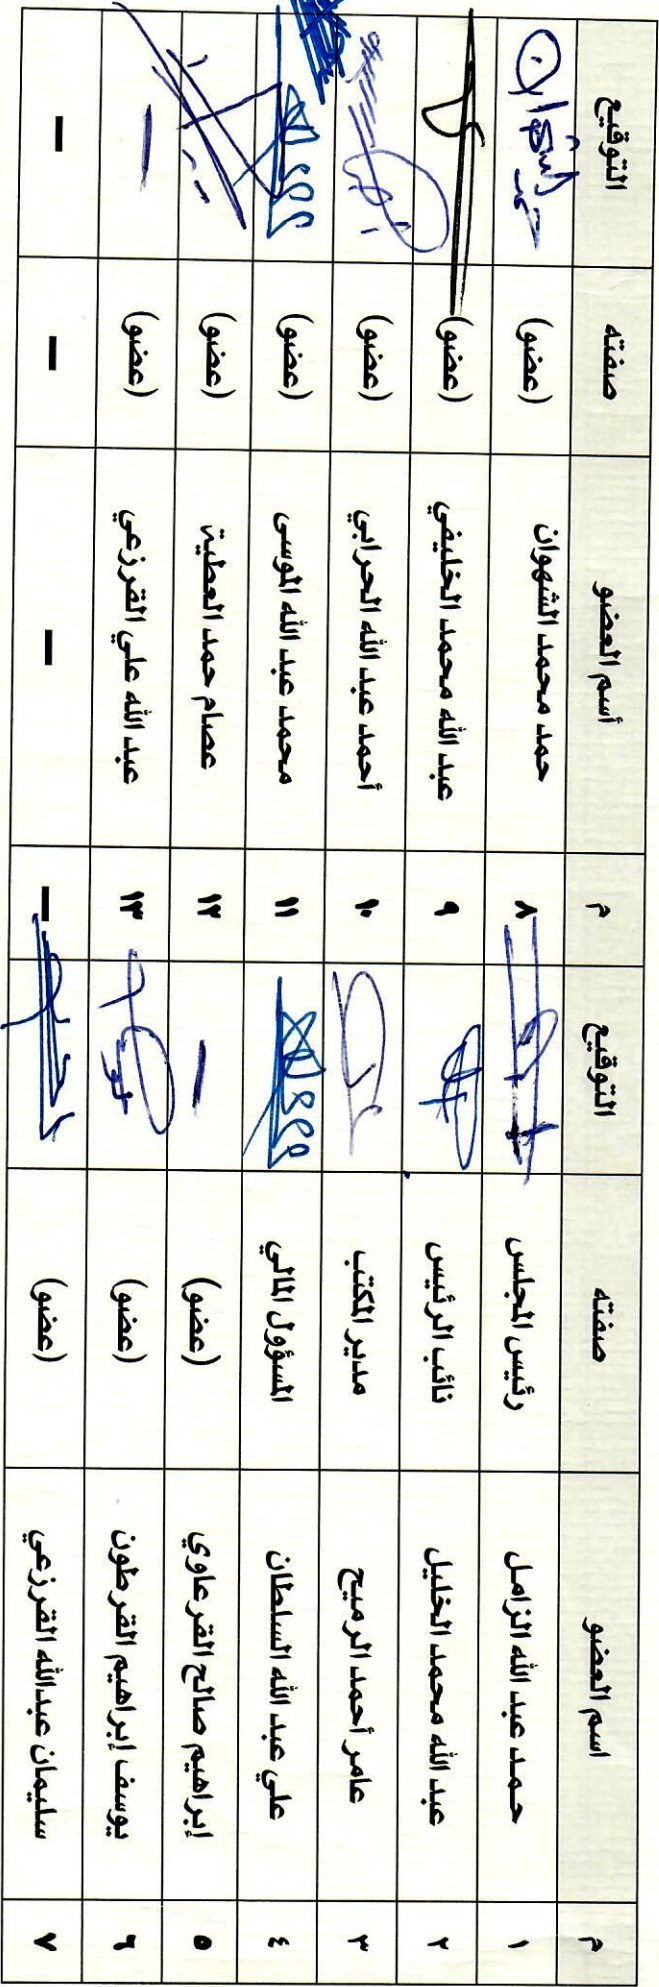 م اسم العضو صفته التوقيع م أسم العضو صفته التوقيع
١ حمد عبد الله الزامل رئيس المجلس ٨ حمد محمد الشهوان (عضو) حمد الشهوان
٢ عبد الله محمد الخليل نائب الرئيس ٩ عبد الله محمد الخليفي (عضو)
٣ عامر أحمد الرميح مدير المكتب ١٠ أحمد عبد الله الحرابي (عضو)
٤ علي عبد الله السلطان المسؤول المالي ١١ محمد عبد الله الموسى (عضو)
٥ إبراهيم صالح القرعاوي (عضو) — ١٢ عصام حمد العطية (عضو)
٦ يوسف إبراهيم القرطون (عضو) ١٣ عبد الله علي القرزعي (عضو) —
٧ سليمان عبدالله القرزعي (عضو) — — — —